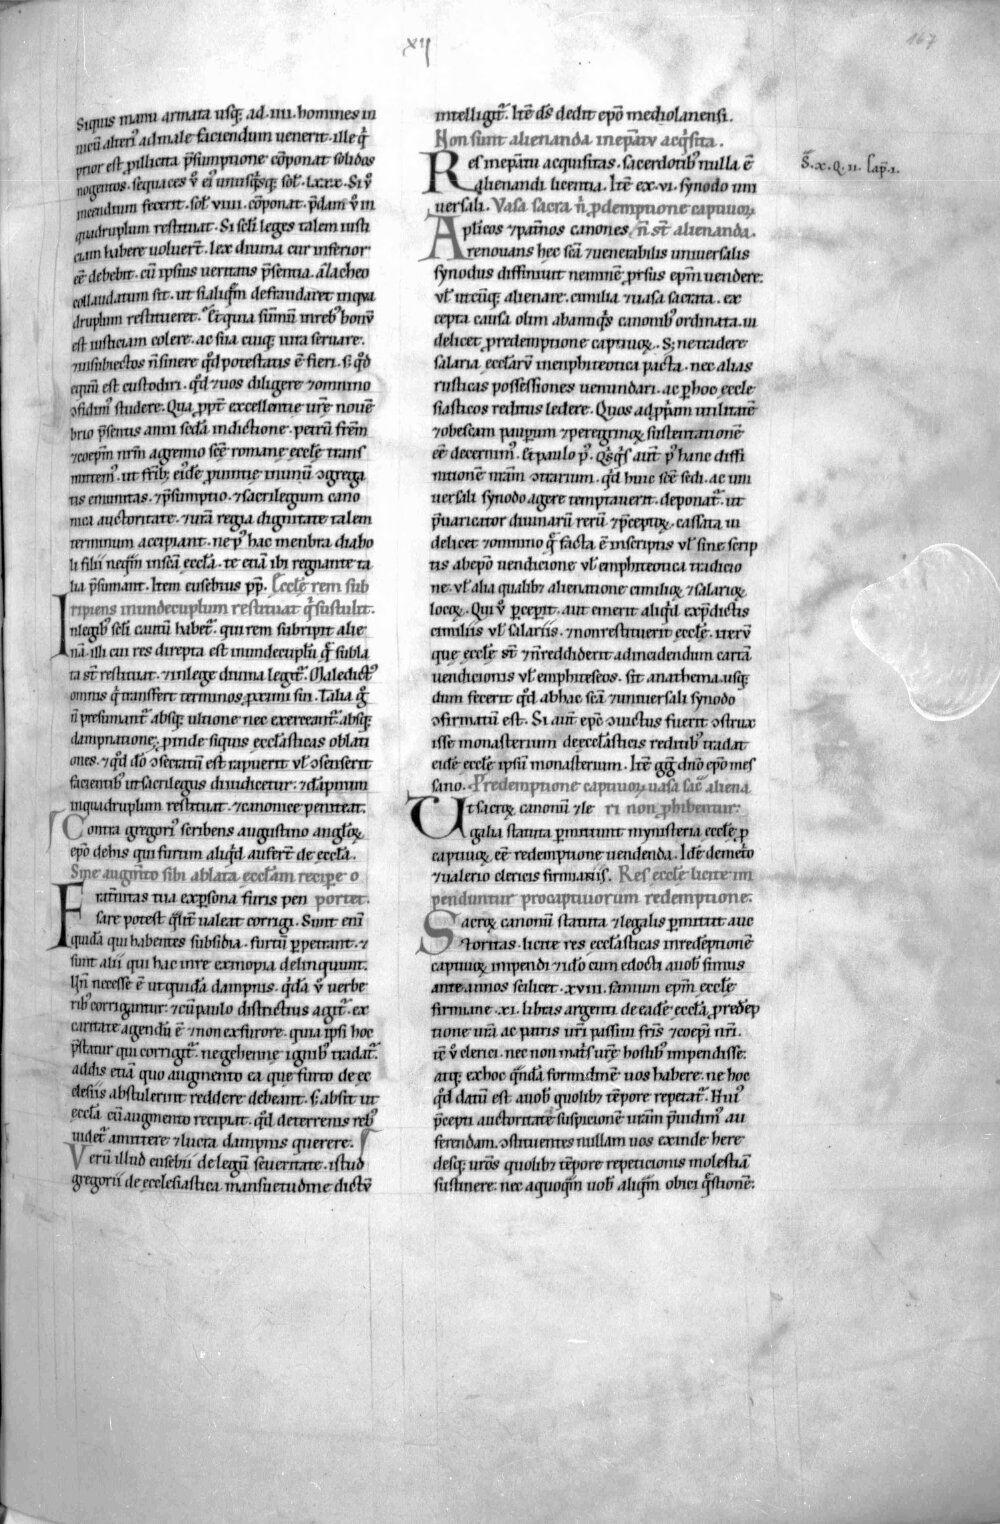 xij
167
Siquis manu armata usq; ad .iiii. homines in
uicū alteri᷒ ad male faciendum uenerit . ille q̇
prior est ꝓ illicita p̄sumptione cōponat solidos
nogentos . sequaces ů ei᷒ unusq̇sq; sol̄ . lxxx . Si ů
incendium fecerit . sol̄ viiii . cōponat . ꝓdam ů in
quadruplum restituat . Si scl̄i leges talem iusti
ciam habere uoluer̄t . lex diuina cur inferior
eē debebit . cū ipsius ueritatis p̄sentia . a᷑lacheo
collaudatum sit . ut si aliqm̄ defraudaret in qua
druplum restitueret . Et quia sūmū in reb᷒ bonū
est iusticiam colere . ac sua cuiq; iura seruare .
⁊ in subiectos n̄ sinere qd̄ potestatis ē fieri . s; qd̄
equm̄ est custodiri . qd̄ ⁊ uos diligere ⁊ omnino
ↄfidim᷒ studere . Qua ꝓpt̄ excellentie ur̄e nouē
brio p̄sentis anni scd̄a indictione . petrū fr̄em
⁊ coep̄m nr̄m a gremio scē romane eccl̄e trans
mittim᷒ . ut frīb; eid̄e ꝓuintie in unū ↄgrega
tis emunitas . ⁊ p̄sumptio . ⁊ sacrilegium cano
nica auctoritate . ⁊ ur̄a regia dignitate talem
terminum accipiant . ne p᷒ hac menbra diabo
li filii nequā in scām eccl̄a . te etiā ibi regnante ta
lia p̄sumant . Item eusebius pp̄ . Eccl̄e rem sub
ripiens in undecuplum restituat q̇ sustulit .
In legib᷒ scl̄i cautū habet᷑ . qui rem subripit alie
nā . illi cui res direpta est in undecuplū q̄ subla
ta st̄ restituat . ⁊ in lege diuina legit᷑ . Maledict᷒
omnis q̇ transfert terminos ꝓximi sui . Talia g̊
n̄ presumant᷑ absq; ultione nec exerceant᷑ absq;
dampnatione . ꝓinde siquis eccl̄asticas oblati
ones . ⁊ qd̄ dō ↄsecratū est rapuerit ul̄ ↄsenserit
facientib᷒ ut sacrilegus diiudicetur . ⁊ dāpnum
in quadruplum restituat . ⁊ canonice peniteat .
Contra gregori᷒ scribens augustino angloꝝ
ep̄o de his qui furtum aliqd̄ aufer̄t de eccl̄a .
Sine augm̄to sibi ablata eccl̄am recipe o
portet .
Fraternitas tua ex ꝑsona furis pen
sare potest qlit̄ ualeat corrigi . Sunt eni̅
quidā qui habentes subsidia . furtū ꝑpetrant . ⁊
sunt alii qui hac in re ex inopia delinquunt .
Un̄ necesse ē ut quidā dampnis . qdā ů uerbe
rib᷒ corrigantur . ⁊ cū paulo districtius agit᷑ . ex
caritate agendū ē ⁊ non ex furore . quia ipsi hoc
p̄statur qui corrigit᷑ . ne gehenne ignib᷒ tradat᷑ .
addis etiā quo augmento ea que furto de ec
clesiis abstulerint reddere debeant . s; absit ut
eccl̄a cū augmento recipiat . qd̄ de terrenis reb᷒
uidet᷑ amittere ⁊ lucra dampnis querere .
Verū illud eusebii de legū seueritate . istud
gregorii de ecclesiastica mansuetudine dictū
intelligit᷑ . Itē ds̄ dedit ep̄o mediolanensi .
Non sunt alienanda in ep̄atu acq̇sita .
Res in ep̄atu acquisitas . sacerdotib᷒ nulla ē
alienandi licentia . Itē ex .vi. synodo uni
uersali . Vasa sacra n̄ ꝓ demptione captiuoꝝ
n̄ st̄ alienanda .
Aplicos ⁊ patr̄nos canones
renouans hec scā ⁊ uenerabilis uniuersalis
synodus diffiniuit neminē prsus ep̄m uendere .
ul̄ utcūq; alienare . cimilia ⁊ uasa sacrata . ex
cepta causa olim ab antiq̇s canonib᷒ ordinata . ui
delicet ꝓ redemptione captiuoꝝ . S; ne tradere
salaria eccl̄arū in enphiteotica pacta . nec alias
rusticas possessiones uenundari . ac ꝑ hoc eccle
siasticos reditus ledere . Quos ad ꝓpriam utilitatē
⁊ ob escam pauperum ⁊ peregrinoꝝ sustentationē
eē decernim᷒ . Et paulo p᷒ . Q̇sq̇s aut̄ p᷒ hanc diffi
nitionē nr̄am ↄtrarium . qd̄ huic scē sedi . ac uni
uersali synodo agere temptauerit . deponat᷑ . ut
p̄uaricator diuinarū rerū ⁊ p̄ceptoꝝ . cassata ui
delicet ⁊ omnino q̄ facta ē in scriptis ul̄ sine scrip
tis ab ep̄o uendicione ul̄ emphiteotica tradicio
ne . ul̄ alia qualib; alienatione cimilioꝝ ⁊ salarioꝝ
locoꝝ . Qui ů ꝑceperit . aut emerit aliqd̄ ex p̄dictis
cimiliis ul̄ salariis . ⁊ non restituerit eccl̄e . iterū
que eccl̄e st̄ ⁊ n̄ reddiderit ad incidendum cartā
uendicionis ul̄ emphiteseos . sit anathema . usq;
dum fecerit qd̄ ab hac scā ⁊ uniuersali synodo
ↄfirmatū est . Si aut̄ ep̄c ↄuictus fuerit ↄstrux
isse monasterium de eccl̄asticis reditib᷒ tradat
eid̄e eccl̄e ipsū monasterium . Itē gg᷒ dnō ep̄o mes
sano . P redemptione captiuoꝝ uasa sac̄ aliena
ri non ꝓhibentur .
Ut sacroꝝ canonū ⁊ le
galia statuta ꝑmittunt mynisteria eccl̄e ꝓ
captiuoꝝ eē redemptione uendenda . Idē demet̊o
⁊ ualerio clericis firmanis . Res eccl̄e licite im
penduntur pro captiuorum redemptione .
Sacroꝝ canonū statuta ⁊ legalis ꝑmittit auc
toritas . licite res eccl̄asticas in redēptionē
captiuoꝝ impendi ⁊ idō cum edocti a uob̄ simus
ante annos scilicet .xviii. fanum ep̄m eccl̄e
firmane .xi. libras argenti de eadē eccl̄a ꝓ redēp
tione ur̄a ac patris ur̄i passiui fr̄is ⁊ coep̄i nr̄i .
tc̄ ů clerici . nec non mat̄s ur̄e hostib᷒ impendisse .
atq; ex hoc q̄ndā formidinē uos habere . ne hoc
qd̄ datū est a uob̄ quolib; tēpore repetat᷑ . Hui᷒
p̄cepti auctoritate suspicionē ur̄am p̄uidim᷒ au
ferendam . ↄstituentes nullam uos exinde here
desq; ur̄os quolib; tēpore repeticionis molestiā
sustinere . nec a quoqm̄ uob̄ aliqm̄ obici q̄stionē .
S̄ . x . Q . ii . Cap̄ . i .